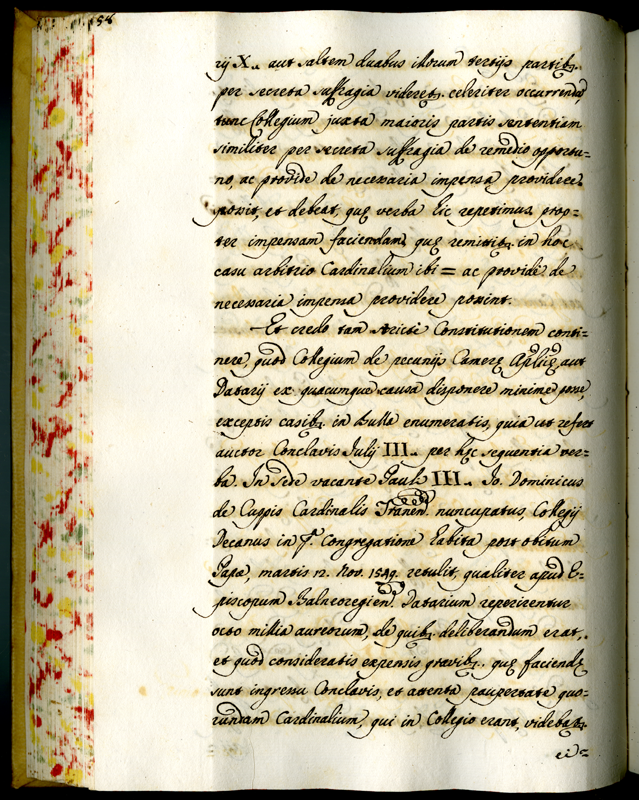 58
rij X. aut saltem duabus illorum tertijs partibꝫ.
per secreta suffragia videretꝫ. celeriter occurrendũ,
tunc Collegium juxta maioris partis sententiam
similiter per secreta suffragia de remedio opportu=
no, ac provide de necessaria impensa providere
possit, et debeat, quę verba hic repetimus prop=
ter impensam faciendam, quę remittitꝫ. in hoc
casu arbitrio Cardinalium ibi = ac providè de
necessaria impensa providere possint.
Et credo tam strictè Constitutionem conti=
nere, quòd Collegium de pecunijs Camerę Aplicę, aut
Datarij ex quacumque causa disponere minimè posse,
exceptis casibꝫ. in Bulla enumeratis, quia ut refert
auctor Conclavis Julij III. per hęc sequentia ver=
ba. In sede vacante Pauli III. Jo. Dominicus
de Cuppis Cardinalis Tranen. nuncupatus, Collegij
Decanus in Congregatione habita post obitum
Papa, martis 12. Nov. 1549. retulit, qualiter apud E=
piscopum Balneoregien. Datarium reperirentur
octo millia aureorum, de quibꝫ. deliberandum erat,
et quòd consideratis expensis gravibꝫ. quę faciendę
sunt ingressu Conclavis, et attenta paupertate quo=
rundam Cardinalium, qui in Collegio erant, videbatꝫ.
ei=